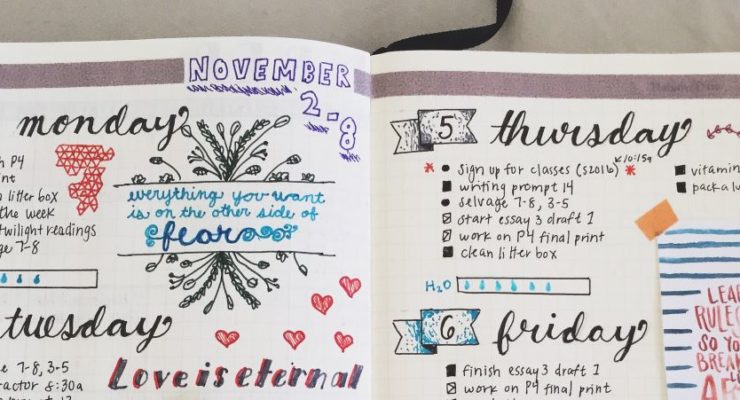 NOVEMBER
2-8
monday
P4
litter box
the week
twilight readings
7-8
everything you want
is on the other side of
fear
tuesday
7-8, 3-5
8:30a
Love is eternal
5 thursday
sign up for classes (S2016)
writing prompt 14
selvage 7-8, 3-5
start essay 3 draft 1
work on P4 final print
clean litter box
H2O
vitamin
pack a
6 friday
finish essay 3 draft 1
work on P4 final print
LEA
RULES
SO YO
BREA